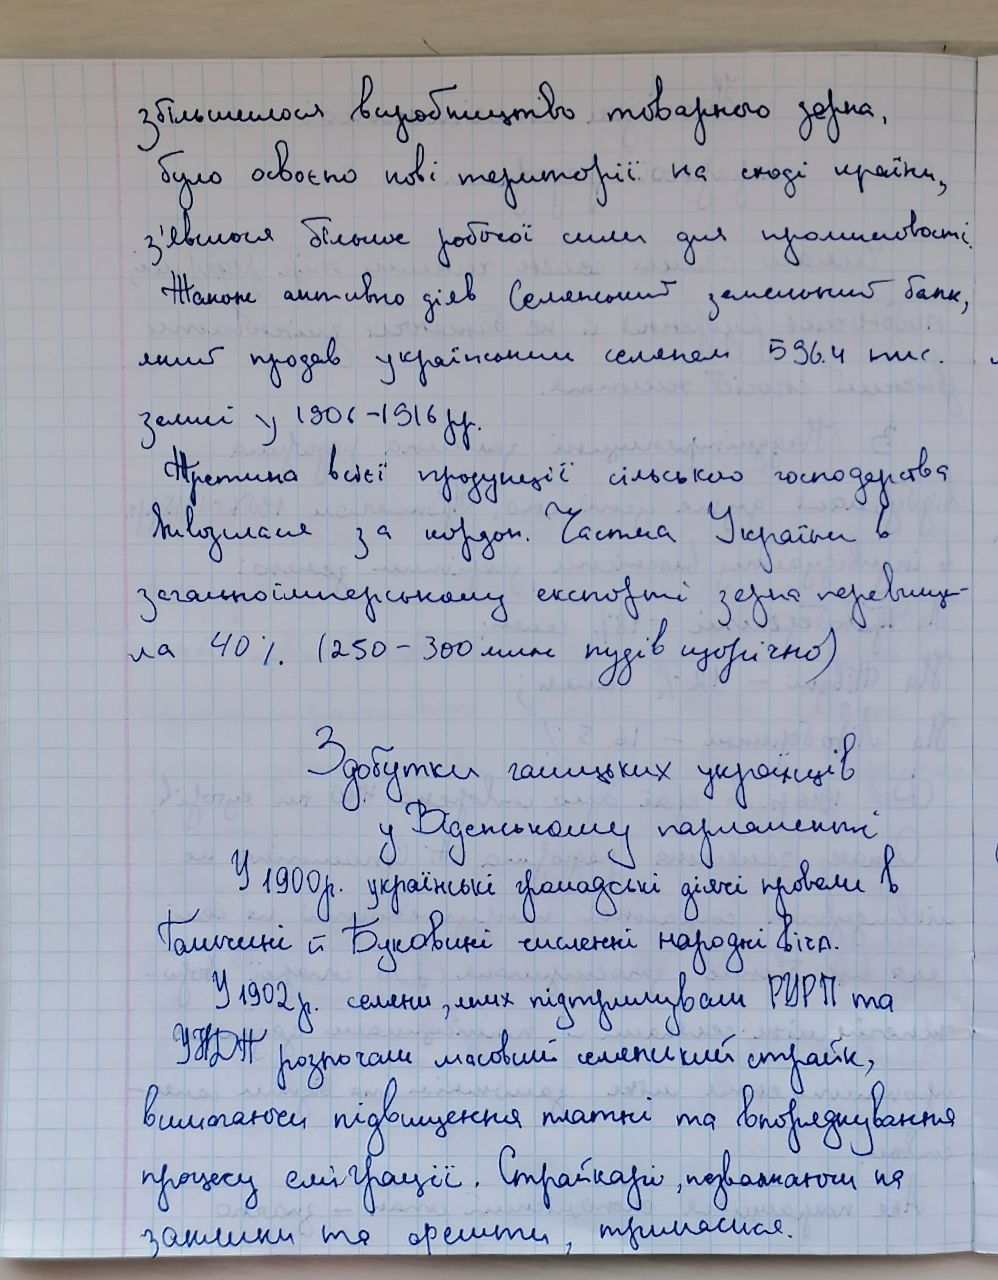 збільшилося виробництво товарного зерна,
було освоєно нові території на сході країни,
з'явилося більше робочої сили для промисловості.
Також активно діяв Селянський земельний банк,
який продав українським селянам 596.4 тис.
землі у 1906-1916 рр.
Третина всієї продукції сільського господарства
вивозилася за кордон. Частка України в
загальноімперському експорті зерна перевищу-
ла 40%. (250-300 млн пудів щорічно)
Здобутки галицьких українців
у Віденському парламенті
У 1900р. українські громадські діячі провели в
Галичині й Буковині численні народні віча.
У 1902р. селяни, яких підтримували РУРП та
УНДП розпочали масовий селянський страйк,
вимагаючи підвищення платні та впорядкування
процесу еміграції. Страйкарі, незважаючи на
заклики та арешти, трималися.